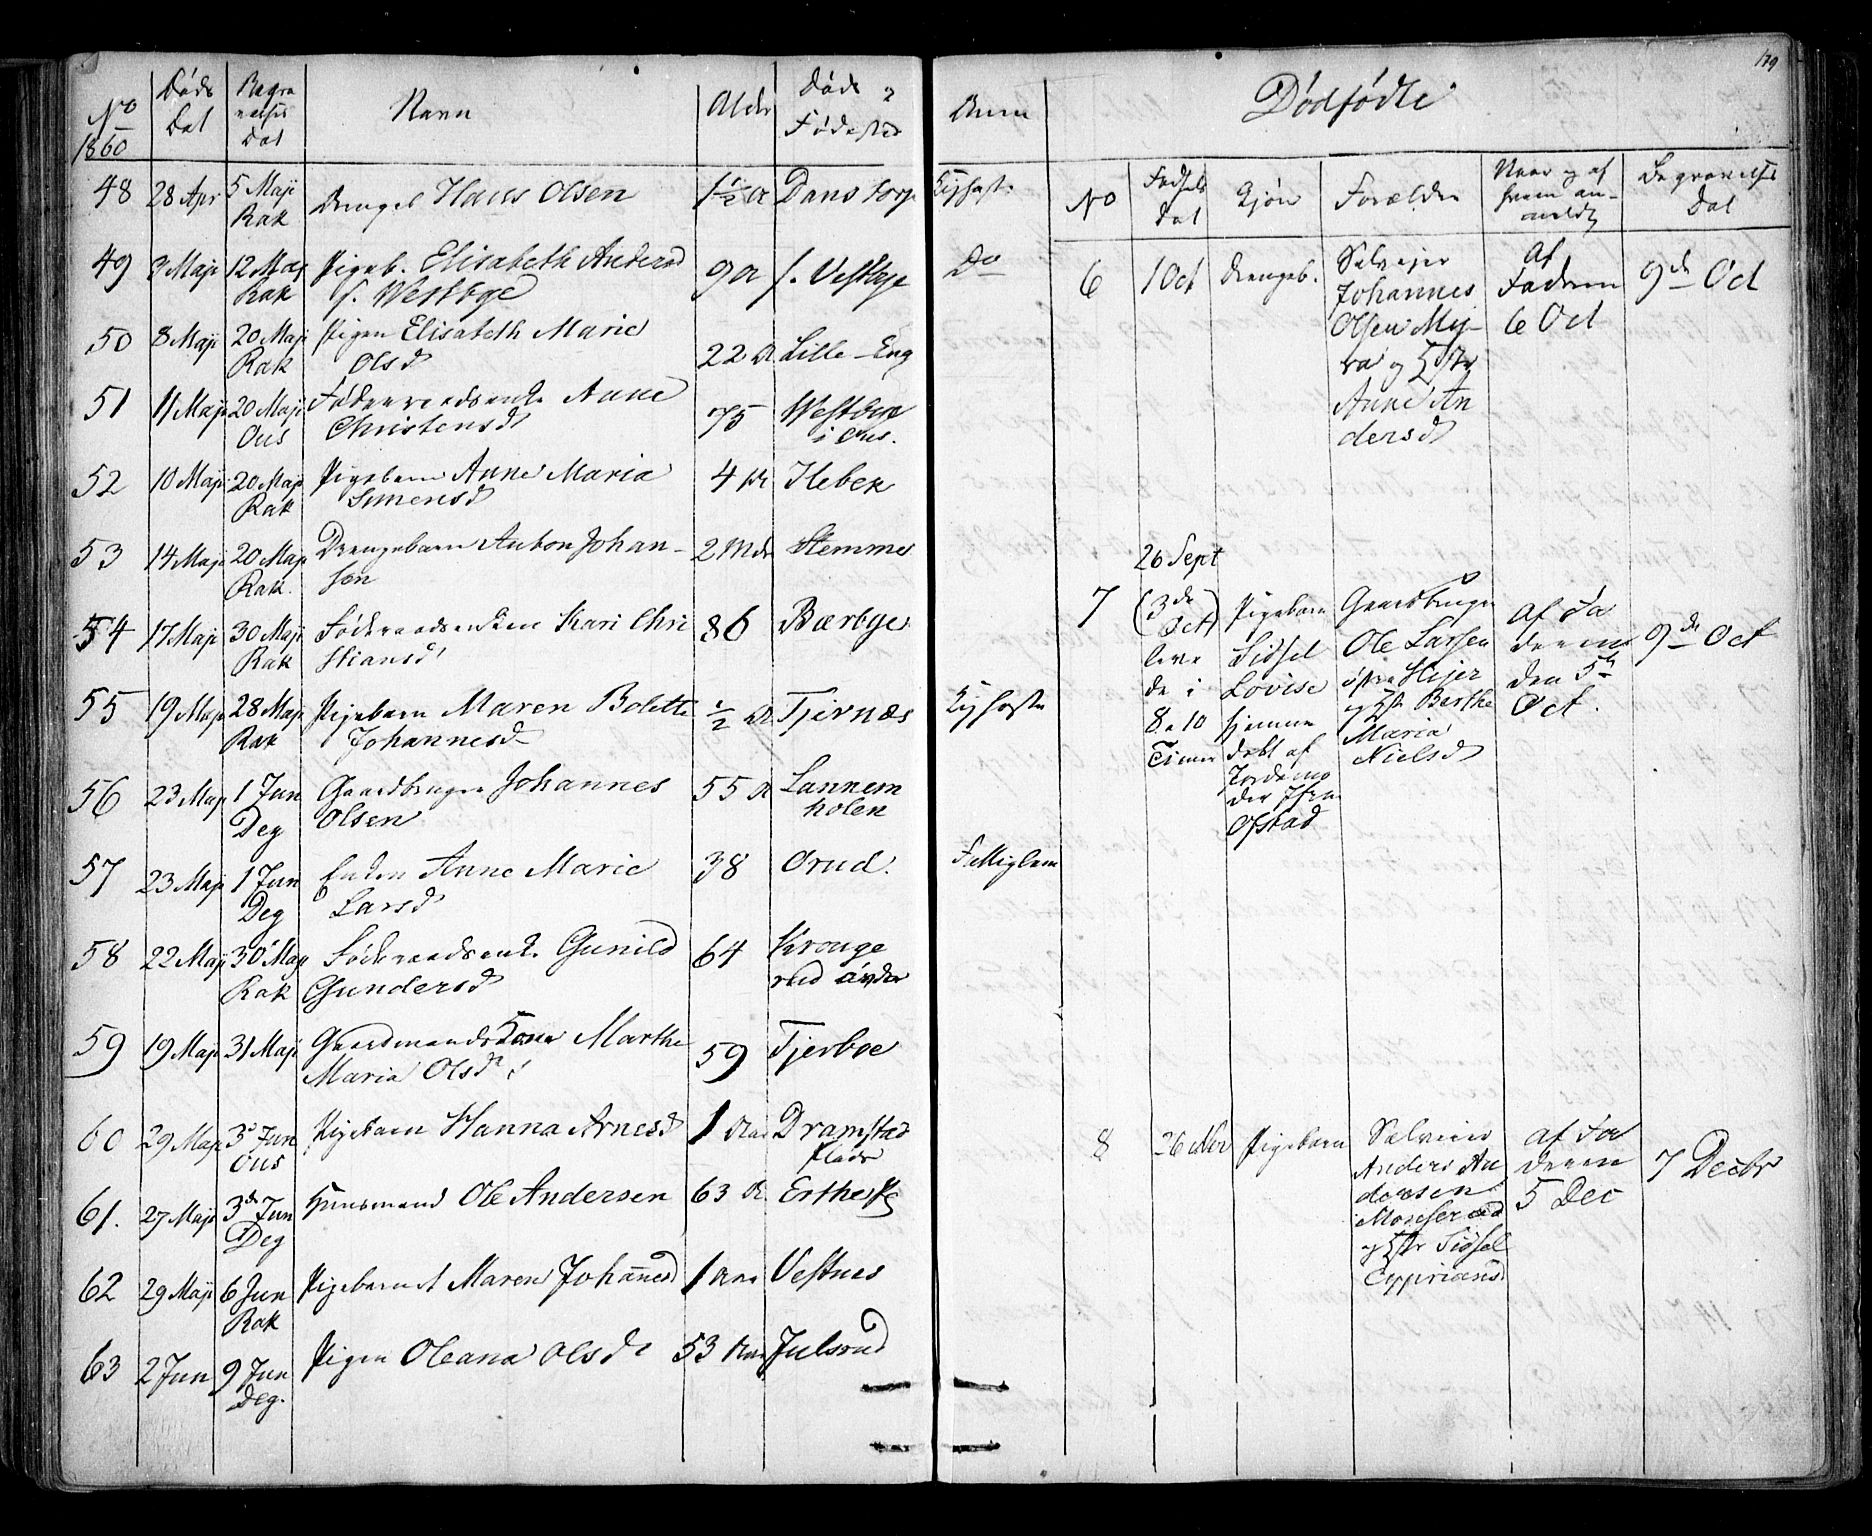 179
No
1860
Døds
Dat
Begra
velses
Dat
Navn
Alder
Døds
Fødested
Anm
48 28 Apr 5 Maji Drengeb Hans Olsen 1½ A Danstorp Kighoste
Rak
49 3 Maji 12 Maj Pigeb. Elisabeth Andersd 9 A s. Vestbye Do
Rak s. Westbye
50 8 Maji 20 Maji Pigen Elisabeth Marie 22 A Lille-Eng
Rak Olsd
51 11 Maji 20 Maji Føderaadsenke Anne 75 Westbye
Ous Christensd i Ous.
52 10 Maji 20 Maji Pigebarn Anne Maria 4 A Ilebek
Rak Simensd
53 14 Maji 20 Maji Drengebarn Anton Johan- 2 Mdr Stemme
Rak. sen
54 17 Maji 30 Maji Føderaadsenken Kari Chri 86 Bærbye
Rak stiansd
55 19 Maji 28 Maji Pigebarn Maren Bolette ½ A Tjernæs Kighoste
Rak Johannesd
56 23 Maji 1 Jun Gaardbruger Johannes 55 A Lannem
Deg Olsen holen
57 23 Maji 1 Jun Enken Anne Marie 38 Orud. Fattiglem
Deg Larsd
58 22 Maji 30 Maji Føderaadsenke Gunild 64 Kronge
Rak Gundersd rud øvder
59 19 Maji 31 Maji Gaardmandskone Marthe 59 Tjerboe
Maria Olsd
60 29 Maji 3 Jun Pigebarn Hanna Arnesd 1 Aar Dramstad
Ous plads
61. 27 Maji 3d Jun Huusmand Ole Andersen 63 A
Deg
62 29 Maji 6 Jun Pigebarnet Maren Johannesd 1 Aar Vestnes
Rak
63 2 Jun 9 Jun Pigen Oleana Olsd 53 Aar Julsrud
Deg.
Dødfødte
No
Fødsels
Dat
Kjøn
Forældre
Naar og af
hvem an-
meldt
Begravelses
Dat
6 1 Oct Drengeb. Selveier Af 9de Oct
Johannes Faderen
Olsen My- 6 Oct
ra og Hstr
Anne An
dersd
26 Sept
7 (3de Pigebarn Gaardbruger af Fa 9de Oct
Oct) Sidsel Ole Larsen deren
leve Lovise østre Hejer den 5te
de i hjemme og Hstr Berthe Oct.
8 a 10 døbt af Maria
Timer Jordemo Nielsd
der
Opstad
8 26 Nov Pigebarn Selveier af Fa 7 Decbr
Anders An deren
dersen 5 Dec
og Hstr Sidsel
Cypriansd